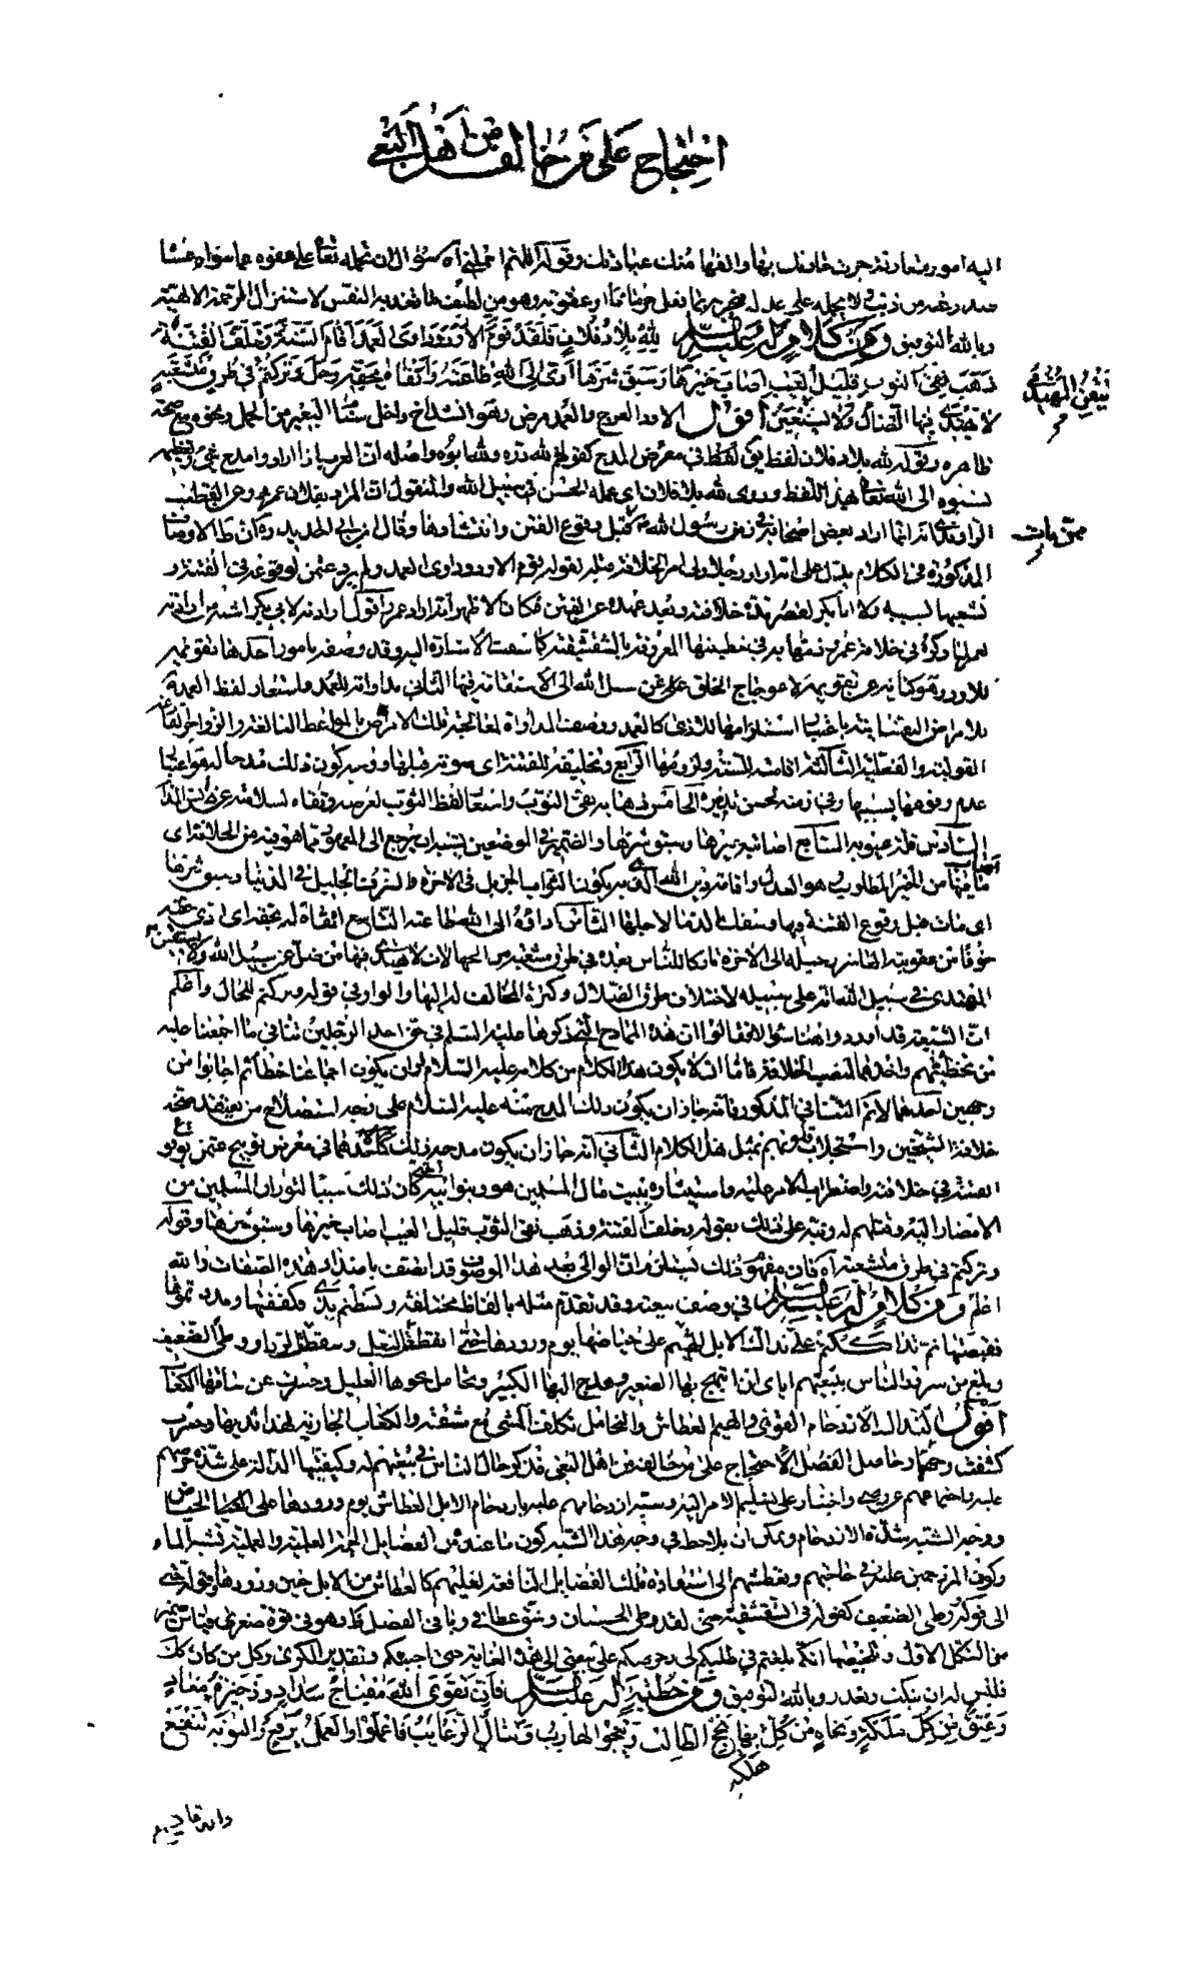 احتجاج على من خالفه من اهل البغى
اليه امور متعارفة جرت عادتك بها والفها منك عبادك وقوله اللهم احملنى اه سؤال ان يحمله تعالى على عفوه عما سواه عنشا
صدر عنه من ذنب ولا يحمله على عدله فيجزيه بما فعل حرمانا او عقوبة وهو من لطيف ما تعد به النفس لاستنزال الرحمة الالهية
وبالله التوفيق ومن كلام له عليه السلم لله بلاد فلان فلقد قوم الاود وداوى العمد اقام السنة وخلف الفتنة
ذهب نقى الثوب قليل العيب اصاب خيرها وسبق شرها ادى الى الله طاعته واتقاه بحقه رحل وتركهم فى طرق متشعبة
لا يهتدى فيها الضال ولا يستيقن المهتدى اقول الاود العوج والعمد مرض وهو انشداخ داخل سنام البعير من الحمل ونحوه مع صحة
ظاهره وقوله لله بلاد فلان لفظ يق لفظ فى معرض المدح كقولهم لله دره ولله ابوه واصله ان العرب اذا ارادوا مدح شىء وتعظيمه
نسبوه الى الله تعالى بهذا اللفظ وروى لله بلاء فلان اى عمله الحسن فى سبيل الله والمنقول ان المراد بفلان عمر وعن القطب
الراوندى انه انما اراد بعض اصحابه فى زمن رسول الله ممن مات قبل وقوع الفتن وانتشارها وقال ابن ابى الحديد ره ان ظاهر الاوصاف
المذكورة فى الكلام يدل على انه اراد رجلا ولى امر الخلافة قبله لقوله قوم الاود وداوى العمد ولم يرد عثمن لوقوعه فى الفتنة و
تشعبها بسببه ولا ابا بكر لقصر مدة خلافته وبعد عهده عن الفتن فكان الاظهر انه اراد عمر واقول ارادته لابى بكر اشبه من ارادته
لعمر لما ذكره فى خلافة عمر وذمها به فى خطبته المعروفة بالشقشقية كما سبقت الاشارة اليه وقد وصفه بامور احدها تقويمه
للاود وهو كناية عن تقويمه لاعوجاج الخلق على عن سبيل الله الى الاستقامة فيها الثانى مداواته للعمد واستعار لفظ العمد
للامراض النفسانية باعتبار استلزامها للاذى كالعمد ووصف المداواة لمعالجة تلك الامراض بالمواعظ البالغة والزواجر القارعة
القولية والفعلية الثالث اقامته للسنة ولزومها الرابع تخليفه للفتنة اى موته قبلها ووجه كون ذلك مدحا له هو اعتبار
عدم وقوعها بسببه وفى زمنه لحسن تدبيره الخامس ذهابه نقى الثوب واستعار لفظ الثوب لعرضه ونقاءه لسلامته عن دنس المذام
السادس قلة عيوبه السابع اصابته خيرها وسبق شرها والضمير فى الموضعين يشبه ان يرجع الى المعهود مما هو فيه من الخلافة اى اصاب
ما فيها من الخير المطلوب هو العدل واقامة دين الله الذى به يكون الثواب الجزيل فى الاخرة والشرف الجليل فى الدنيا وسبق شرها
اى مات قبل وقوع الفتنة فيها وسفك الدماء لاجلها الثامن اداؤه الى الله طاعته التاسع اتقاؤه له بحقه اى ادى حقه
خوفا من عقوبته العاشر رحيله الى الاخرة تاركا للناس بعده فى طرق متشعبة من الجهالات لا يهتدى فيها من ضل عن سبيل الله ولا يستيقن
المهتدى فى سبيل الله انه على سبيله لاختلاف طرق الضلال وكثرة المخالف له اليها والواو فى قوله وتركهم للحال واعلم
ان الشيعة قد اوردوا هنا سؤالا فقالوا ان هذه الممادح التى ذكرها عليه السلم فى حق احد الرجلين تنافى ما اجمعنا عليه
من تخطئتهم واخذهما لمنصب الخلافة فاما ان لا يكون هذا الكلام من كلامه عليه السلام او ان يكون اجماعنا خطأ ثم اجابوا من
وجهين احدهما لانم التنافى المذكور فانه جاز ان يكون ذلك المدح منه عليه السلام على وجه استصلاح من يعتقد صحة
خلافة الشيخين واستجلاب قلوبهم بمثل هذا الكلام الثانى انه جاز ان يكون مدحه ذلك لاحدهما فى معرض توبيخ عثمن بوقوع
الفتنة فى خلافته واضطراب الامر عليه واستيثاره ببيت مال المسلمين هو وبنو ابيه حتى كان ذلك سببا لثوران المسلمين من
الامصار اليه وقتلهم له ونبه على ذلك بقوله وخلف الفتنة وذهب نقى الثوب قليل العيب اصاب خيرها وسبق شرها وقوله
وتركهم فى طرق متشعبة اه فان مفهوم ذلك يستلزم ان الوالى بعد هذا الموصوف قد اتصف باضداد هذه الصفات والله
اعلم ومن كلام له عليه السلم فى وصف بيعته وقد تقدم مثله بالفاظ مختلفة وبسطتم يدى فكففتها ومددتموها
فقبضتها ثم تداككتم على تداك الابل الهيم على حياضها يوم ورودها حتى انقطعت النعل وسقطت الرداء ووطئ الضعيف
وبلغ من سرور الناس ببيعتهم اياى ان ابتهج بها الصغير وهدج اليها الكبير وتحامل نحوها العليل وحسرت عن ساقها الكعاب
اقول التداك الازدحام القوى والهيم العطاش والتحامل تكلف المشى مع مشقة والكعاب الجارية نهد ثديها وحسرت
كشفت وجهها وحاصل الفصل الاحتجاج على من خالفه من اهل البغى فذكر حال الناس فى بيعتهم له وكيفيتها الدالة على شدة حرصهم
عليه باجتماعهم عن رضى واختيار على تسليم الامر اليه وشبه ازدحامهم عليه بازدحام الابل العطاش يوم ورودها على الحياض
ووجه الشبه شدة الازدحام ويمكن ان يلاحظ فى وجه هذا الشبه كون ما عنده من الفضايل الجمة العلمية والعملية تشبه الماء
وكون المزدحمين عليه فى حاجتهم وتعطشهم الى استفادة تلك الفضايل النافعة لغليلهم كالعطاش من الابل حين ورودها وقوله حتى
الى قوله ووطى الضعيف كقوله فى الشقشقية حتى لقد وطى الحسنان وشق عطافى وباقى الفصل ظ وهو فى قوة صغرى قياس ضمير
من الشكل الاول وتلخيصها انكم بلغتم فى طلبكم لى وحرصكم على بيعتى الى هذه الغاية حتى اجبتكم وتقدير الكبرى وكل من كان كك
فليس له ان ينكث ويغدر وبالله التوفيق ومن خطبة له عليه السلم فان تقوى الله مفتاح سداد وذخيرة معاد
وعتق من كل ملكة ونجاة من كل هلكة بها ينجح الطالب وينجو الهارب وتنال الرغائب فاعملوا والعمل يرفع والتوبة تنفع
والدعاء يسمع